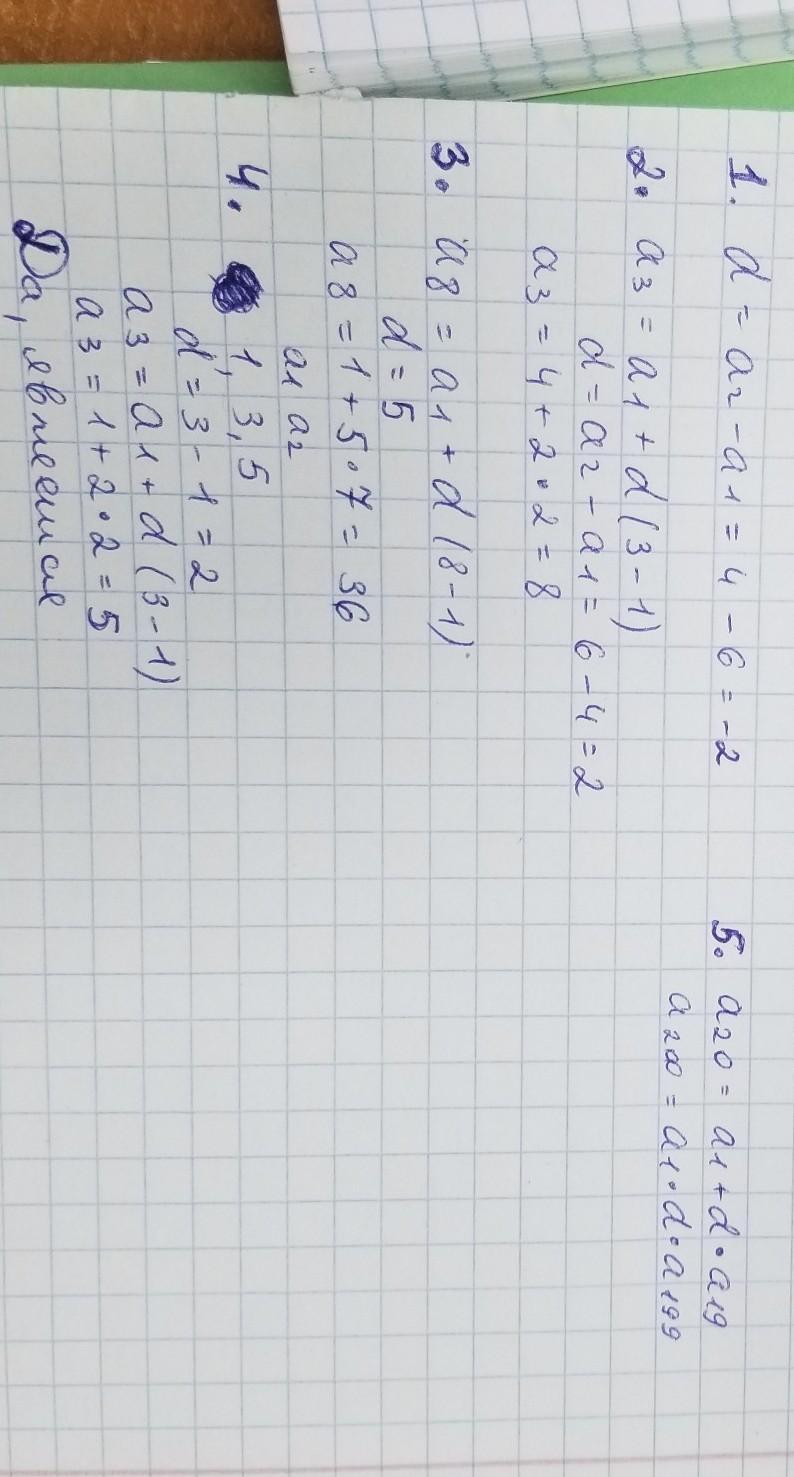 1. d = a2 - a1 = 4 - 6 = -2
2. a3 = a1 + d (3 - 1)
d = a2 - a1 = 6 - 4 = 2
a3 = 4 + 2 · 2 = 8
3. a8 = a1 + d (8 - 1)
d = 5
a8 = 1 + 5 · 7 = 36
a1 a2
4. 1, 3, 5
d = 3 - 1 = 2
a3 = a1 + d (3 - 1)
a3 = 1 + 2 · 2 = 5
Да, является
5. a20 = a1 + d · a19
a200 = a1 · d · a199